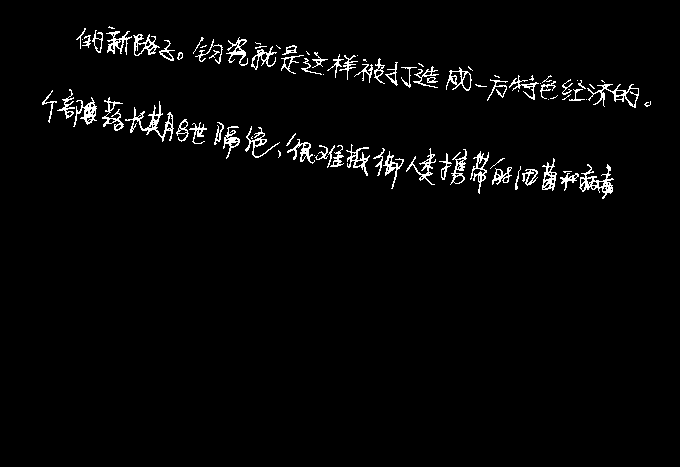 的新路子。钧瓷就是这样被打造成一方特色经济的。
个部落长期与世隔绝、很难抵御人类携带的细菌和病毒